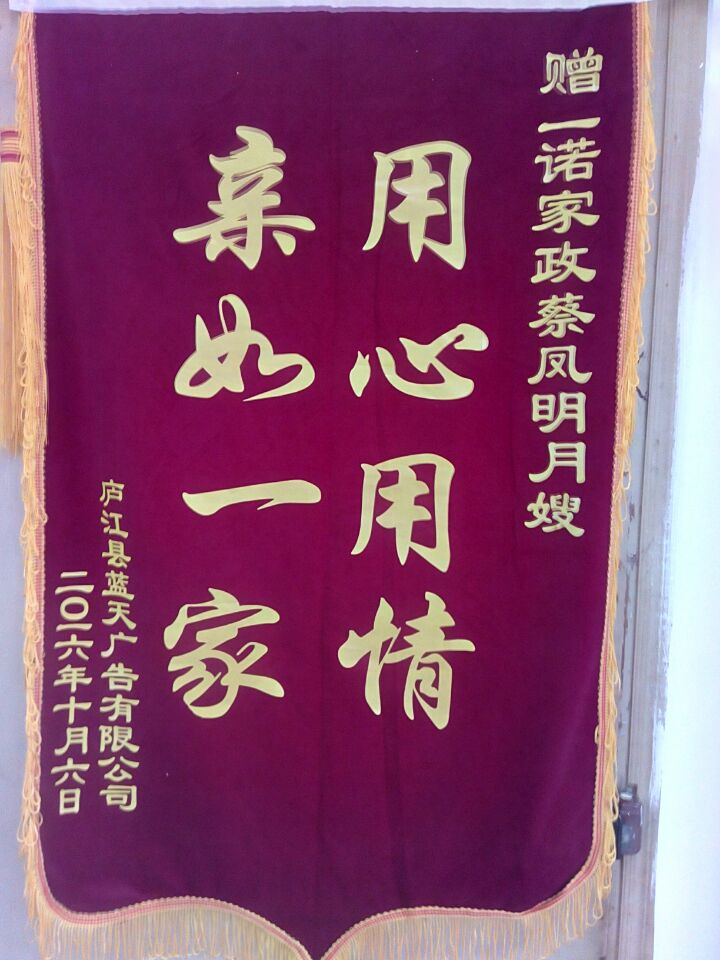 赠一诺家政蔡凤明月嫂
用心用情
亲如一家
庐江县蓝天广告有限公司
二〇一六年十月六日